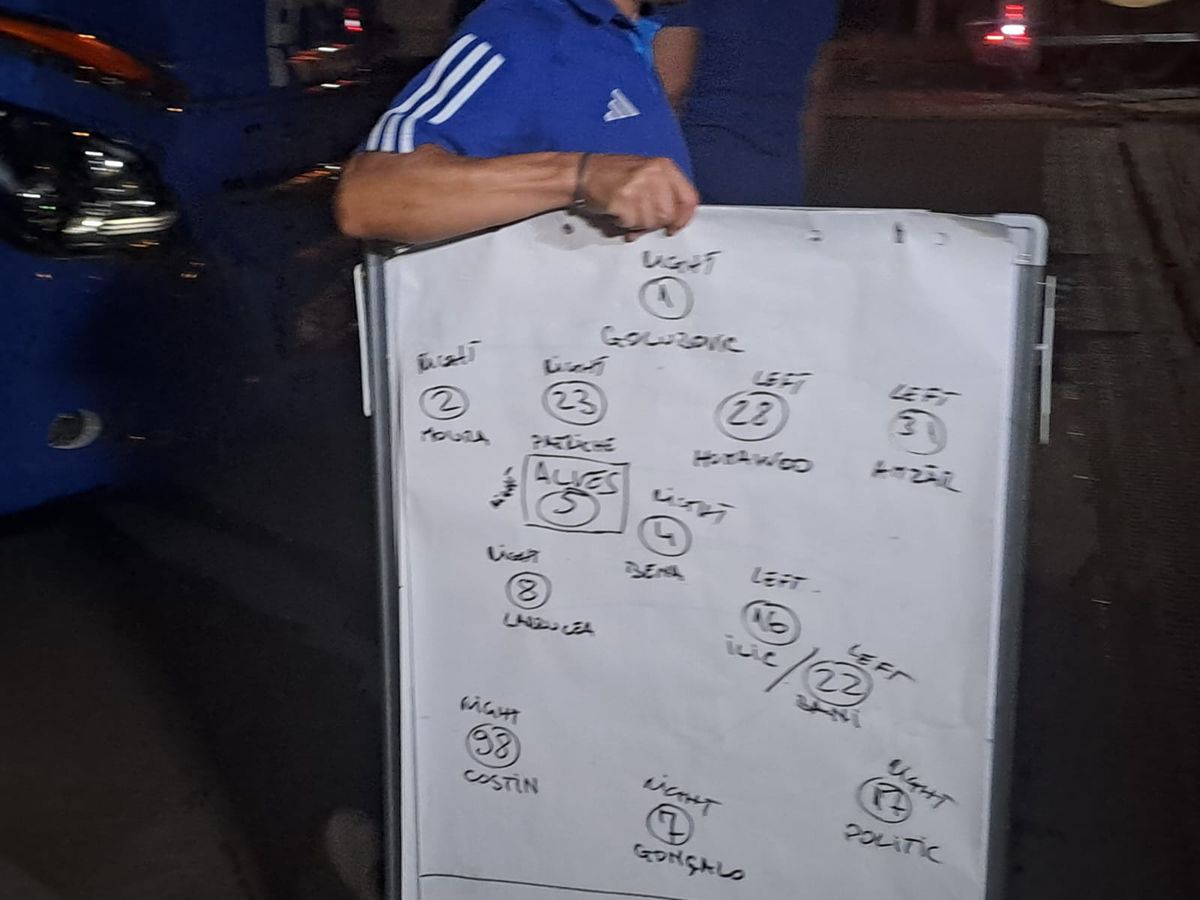 RIGHT
1
GOLUBOVIC
RIGHT
2
MOURA
RIGHT
23
PATRICHE
LEFT
28
LEFT
31
AMZĂR
ALVES
5
RIGHT
4
BENA
RIGHT
8
LEFT
16
ILIC /
LEFT
22
BANI
RIGHT
98
COSTIN
RIGHT
7
GONÇALO
RIGHT
17
POLITIC